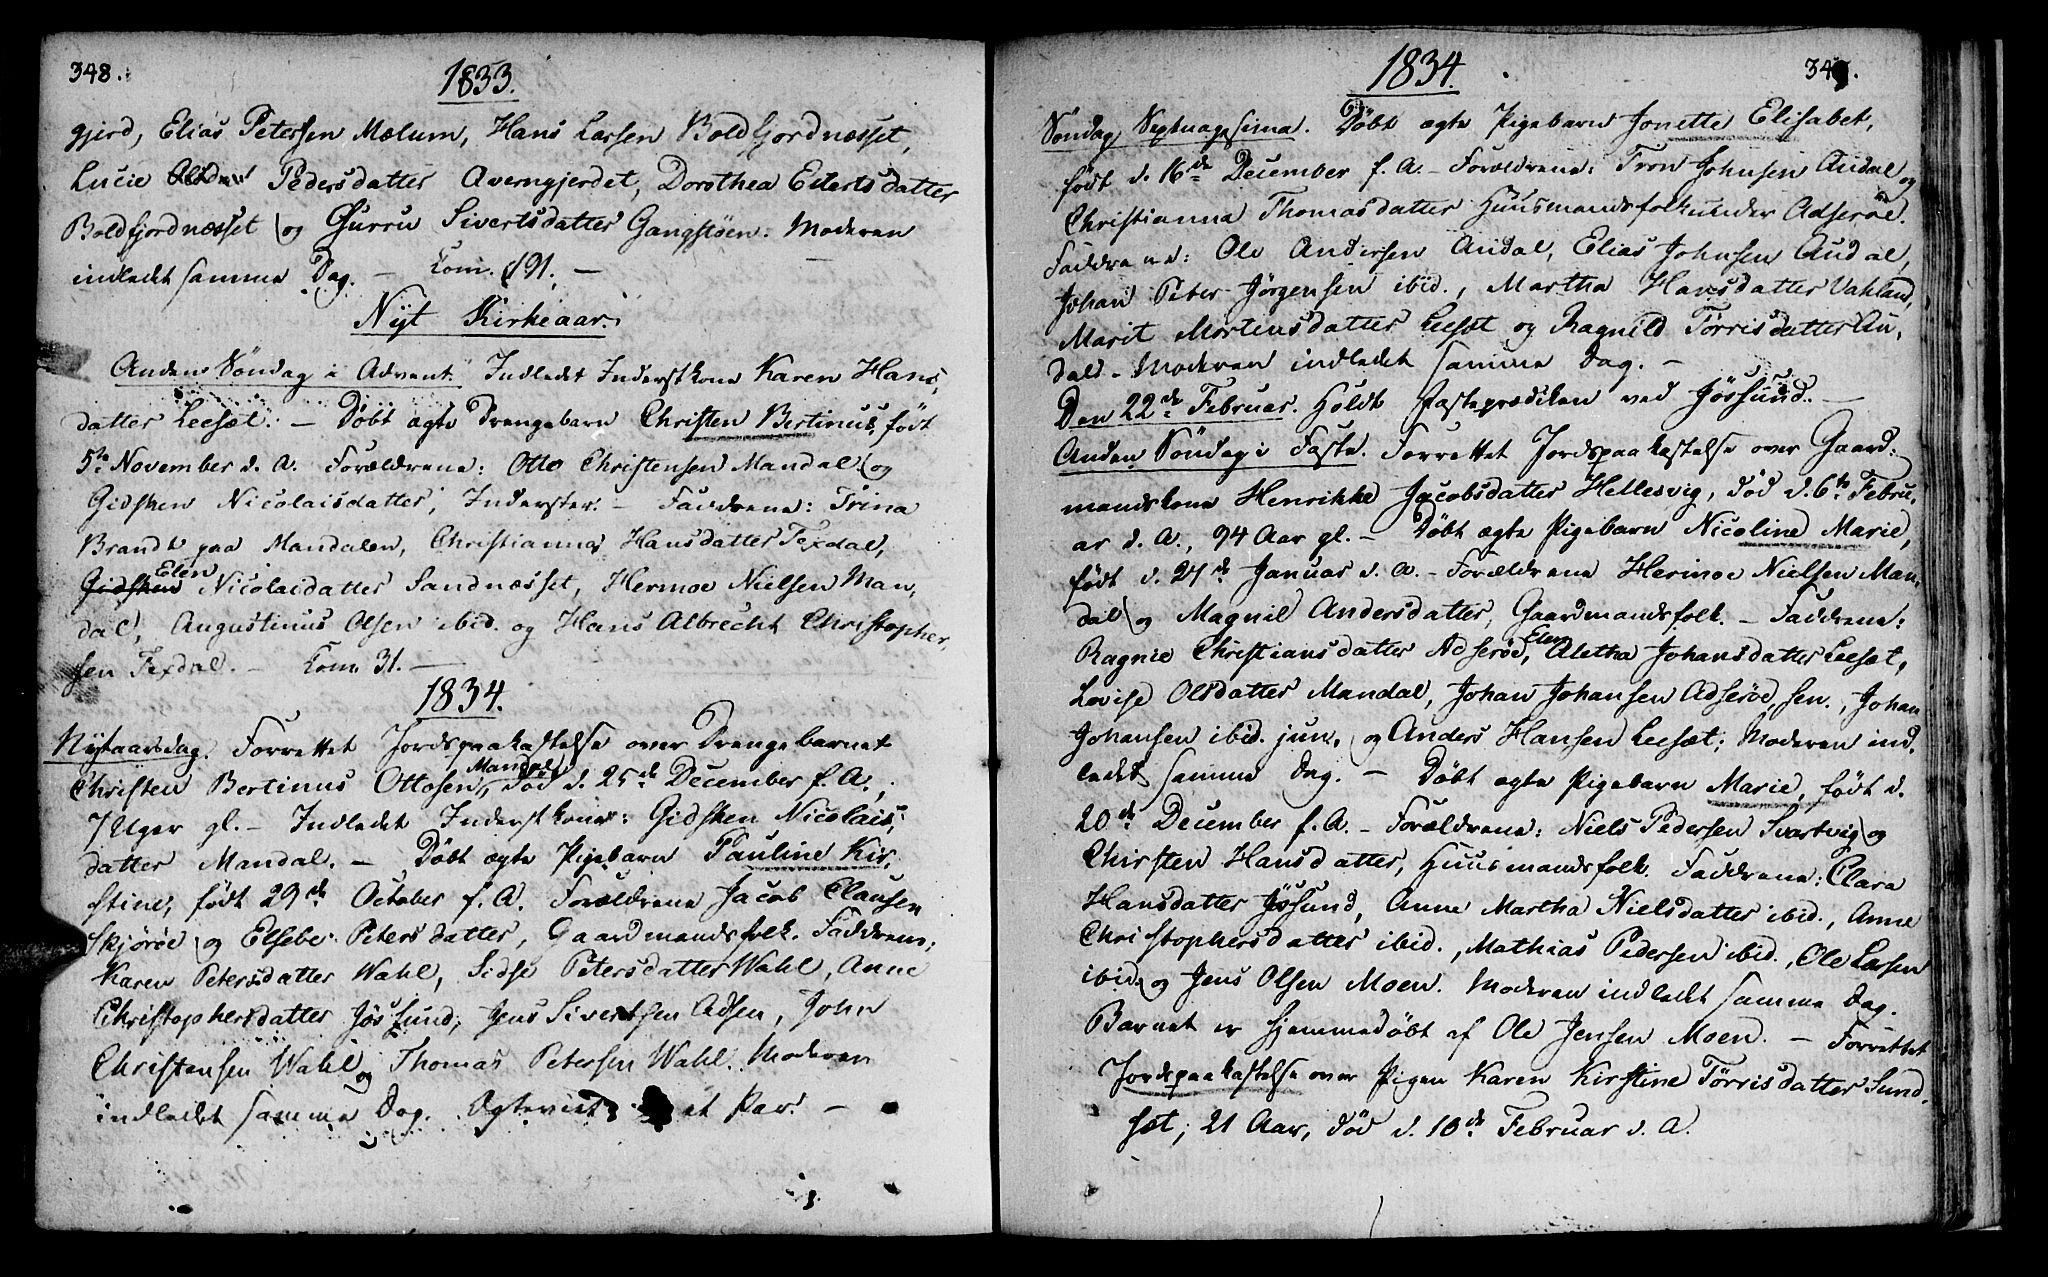 348.
1833.
gjerd, Elias Petersen Mælum, Hans Larsen Boldfjordnæsset,
Lucie Pedersdatter Averngjerdet, Dorothea Eilertsdatter
Boldfjordnæsset og Gurru Sivertsdatter Gangstöen. Moderen
indledet samme Dag. — Com. 191. —
Nyt Kirkeaar.
Anden Söndag i Advent. Indledet Inderstkone Karen Hans,
datter Leesæt. — Döbt ægte Drengebarn Christen Bertinus, födt
5te November d. A. Forældrene: Otto Christensen Mandal og
Gidsken Nicolaisdatter, Inderster. — Faddrene: Trina
Brandt paa Mandalen, Christianna Hansdatter Texdal,
Elen
Gidsken Nicolaidatter Sandnæsset, Hermoe Nielsen Man,
dal, Augustinus Olsen ibid. og Hans Albrecht Christopher,
sen Texdal. — Com. 31. —
1834.
Nytaarsdag. Forrettet Jordspaakastelse over Drengebarnet
Christen Bertinus Ottosen, Mandal, död d. 25de December f. A.,
7 Uger gl. — Indledet Inderstkone: Gidsken Nicolais,
datter Mandal. — Döbt ægte Pigebarn Pauline Kir,
stine, födt 29de October f. A. Forældrene Jacob Clausen
Skjöröe og Elsebe Petersdatter, Gaardmandsfolk. Faddrene;
Karen Petersdatter Wahl, Sidse Petersdatter Wahl, Anne
Christophersdatter Jössund, Jens Sivertsen Adsen, John
Christensen Wahl og Thomas Petersen Wahl. Moderen
indledet samme Dag. Ægteviet et Par. —
1834.
Söndag Septuagesima. Döbt ægte Pigebarn Jonette Elisabet,
födt d. 16de December f. A. — Forældrene: Tron Johnsen Audal og
Christianna Thomasdatter Huusmandsfolk under Adseröe.
Faddrene: Ole Andersen Audal, Elias Johnsen Audal,
Johan Peter Jörgensen ibid., Martha Hansdatter Vahland,
Marit Mortensdatter Leesæt og Ragnild Törrisdatter Au,
dal. — Moderen indledet samme Dag. —
Den 22de Februar. Holdt Fasteprædiken ved Jössund. —
Anden Söndag i Faste. Forrettet Jordspaakastelse over Gaard,
mandskone Henrikke Jacobsdatter Hellesvig, död d. 6te Febru,
ar d. A., 94 Aar gl. — Döbt ægte Pigebarn Nicoline Marie,
födt d. 27de Januar d. A. — Forældrene Hermoe Nielsen Man,
dal og Magnil Andersdatter, Gaardmandsfolk. — Faddrene:
Ragnie Christiansdatter Adseröe, Elen Aletha Johansdatter Leesæt,
Lovise Olsdatter Mandal, Johan Johansen Adseröe, sen., Johan
Johansen ibid. jun., og Anders Hansen Leesæt; Moderen ind,
ledet samme Dag. — Döbt ægte Pigebarn Marie, födt d.
20de December f. A. — Forældrene: Niels Pedersen Svartvig og
Chirsten Hansdatter, Huusmandsfolk. Faddrene: Clara
Hansdatter Jössund, Anne Martha Nielsdatter ibid., Anne
Christophersdatter ibid., Mathias Pedersen ibid., Ole Larsen
ibid. og Jens Olsen Moen. Moderen indledt samme Dag.
Barnet er hjemmedöbt af Ole Jensen Moen. — Forrettet
Jordspaakastelse over Pigen Karen Kirstine Törrisdatter Sund,
sæt, 21 Aar, död d. 10de Februar d. A.